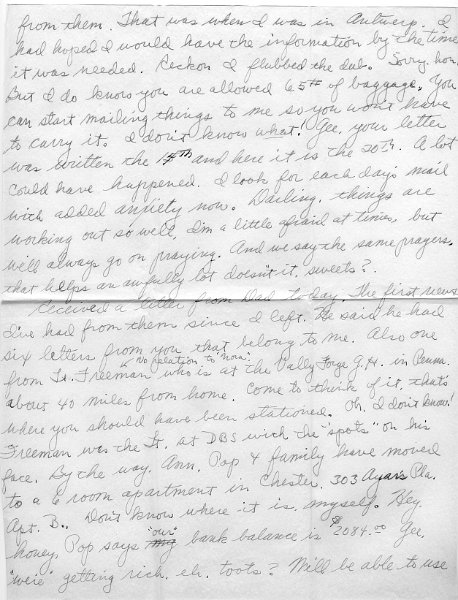 from them. That was when I was in Antwerp. I
had hoped I would have the information by the time
it was needed. Reckon I flubbed the dub. Sorry, hon.
But I do know you are allowed 65# of baggage. You
can start mailing things to me so you won't have
to carry it. I don't know what! Gee, your letter
was written the and here it is the 20th. A lot
could have happened. I look for each day's mail
with added anxiety now. Darling, things are
working out so well, I'm a little afraid at times, but
we'll always go on praying. And we say the same prayers.
that helps an awfully lot doesn't it, sweets?
Received a letter from Dad today. The first news
I've had from them since I left. He said he had
six letters from you that belong to me. Also one
from Lt. Freeman "no relation to "now" who is at the Vally Forge G.H. in Penna.
about 40 miles from home. Come to think of it, that's
where you should have been stationed. Oh, I don't know!
Freeman was the Lt. at DBS with the "spots" on his
face. By the way, Ann, Pop & family have moved
to a 6 room apartment in Chester, 303 Pla.
Apt. B.. Don't know where it is, myself. Hey,
honey, Pop says "our" my bank balance is $2084.00 Gee,
"we're" getting rich, eh, toots? We'll be able to use